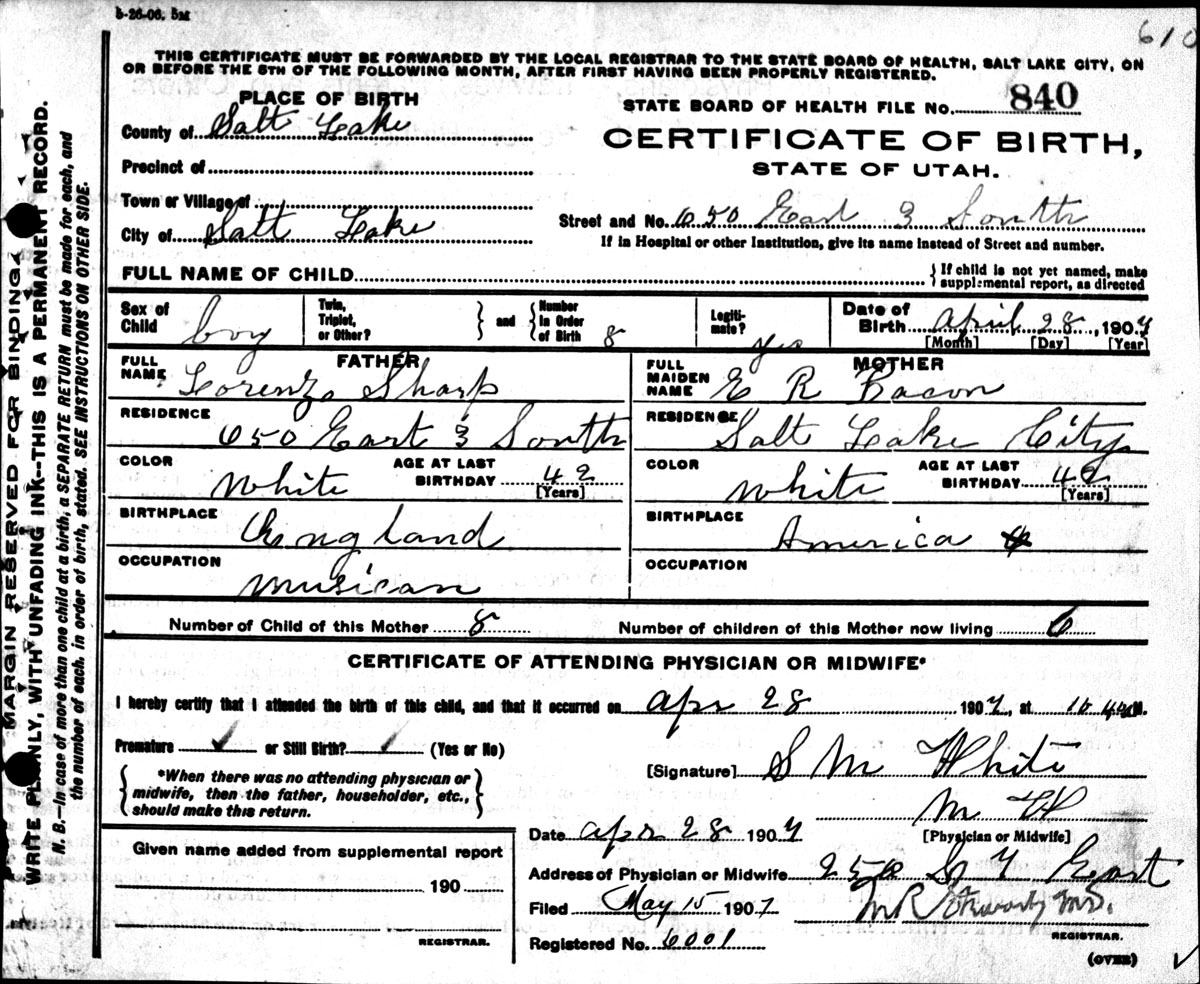 5-26-06. 5M
610
THIS CERTIFICATE MUST BE FORWARDED BY THE LOCAL REGISTRAR TO THE STATE BOARD OF HEALTH, SALT LAKE CITY, ON
OR BEFORE THE 5TH OF THE FOLLOWING MONTH, AFTER FIRST HAVING BEEN PROPERLY REGISTERED.
PLACE OF BIRTH
STATE BOARD OF HEALTH FILE NO. 840
County of Salt Lake
CERTIFICATE OF BIRTH,
STATE OF UTAH.
Precinct of
Town or Village of
Street and No. 650 East 3 South
City of Salt Lake
If in Hospital or other Institution, give its name instead of Street and number.
FULL NAME OF CHILD
{ If child is not yet named, make
supplemental report, as directed
Sex of Child boy
Twin, Triplet, or Other? } and { Number in Order of Birth 8
Legiti-mate? yes
Date of Birth April 28, 1907
[Month] [Day] [Year]
FATHER
FULL NAME Lorenzo Sharp
MOTHER
FULL MAIDEN NAME E R Bacon
RESIDENCE 650 East 3 South
RESIDENCE Salt Lake City
COLOR White AGE AT LAST BIRTHDAY 42 [Years]
COLOR White AGE AT LAST BIRTHDAY 42 [Years]
BIRTHPLACE England
BIRTHPLACE America
OCCUPATION Musican
OCCUPATION
Number of Child of this Mother 8 Number of children of this Mother now living 6
CERTIFICATE OF ATTENDING PHYSICIAN OR MIDWIFE*
I hereby certify that I attended the birth of this child, and that it occurred on Apr 28 1907, at M.
Premature ✓ or Still Birth? ✓ (Yes or No)
[Signature] S M White
{ *When there was no attending physician or
midwife, then the father, householder, etc.,
should make this return. }
M W
[Physician or Midwife]
Date Apr 28 1907
Given name added from supplemental report
Address of Physician or Midwife 250 So 7 East
190
Filed May 15 1907
M.D.
REGISTRAR.
REGISTRAR.
Registered No. 6001
(OVER)
MARGIN RESERVED FOR BINDING
WRITE PLAINLY, WITH UNFADING INK--THIS IS A PERMANENT RECORD.
N. B.—In case of more than one child at a birth, a SEPARATE RETURN must be made for each, and
the number of each, in order of birth, stated. SEE INSTRUCTIONS ON OTHER SIDE.